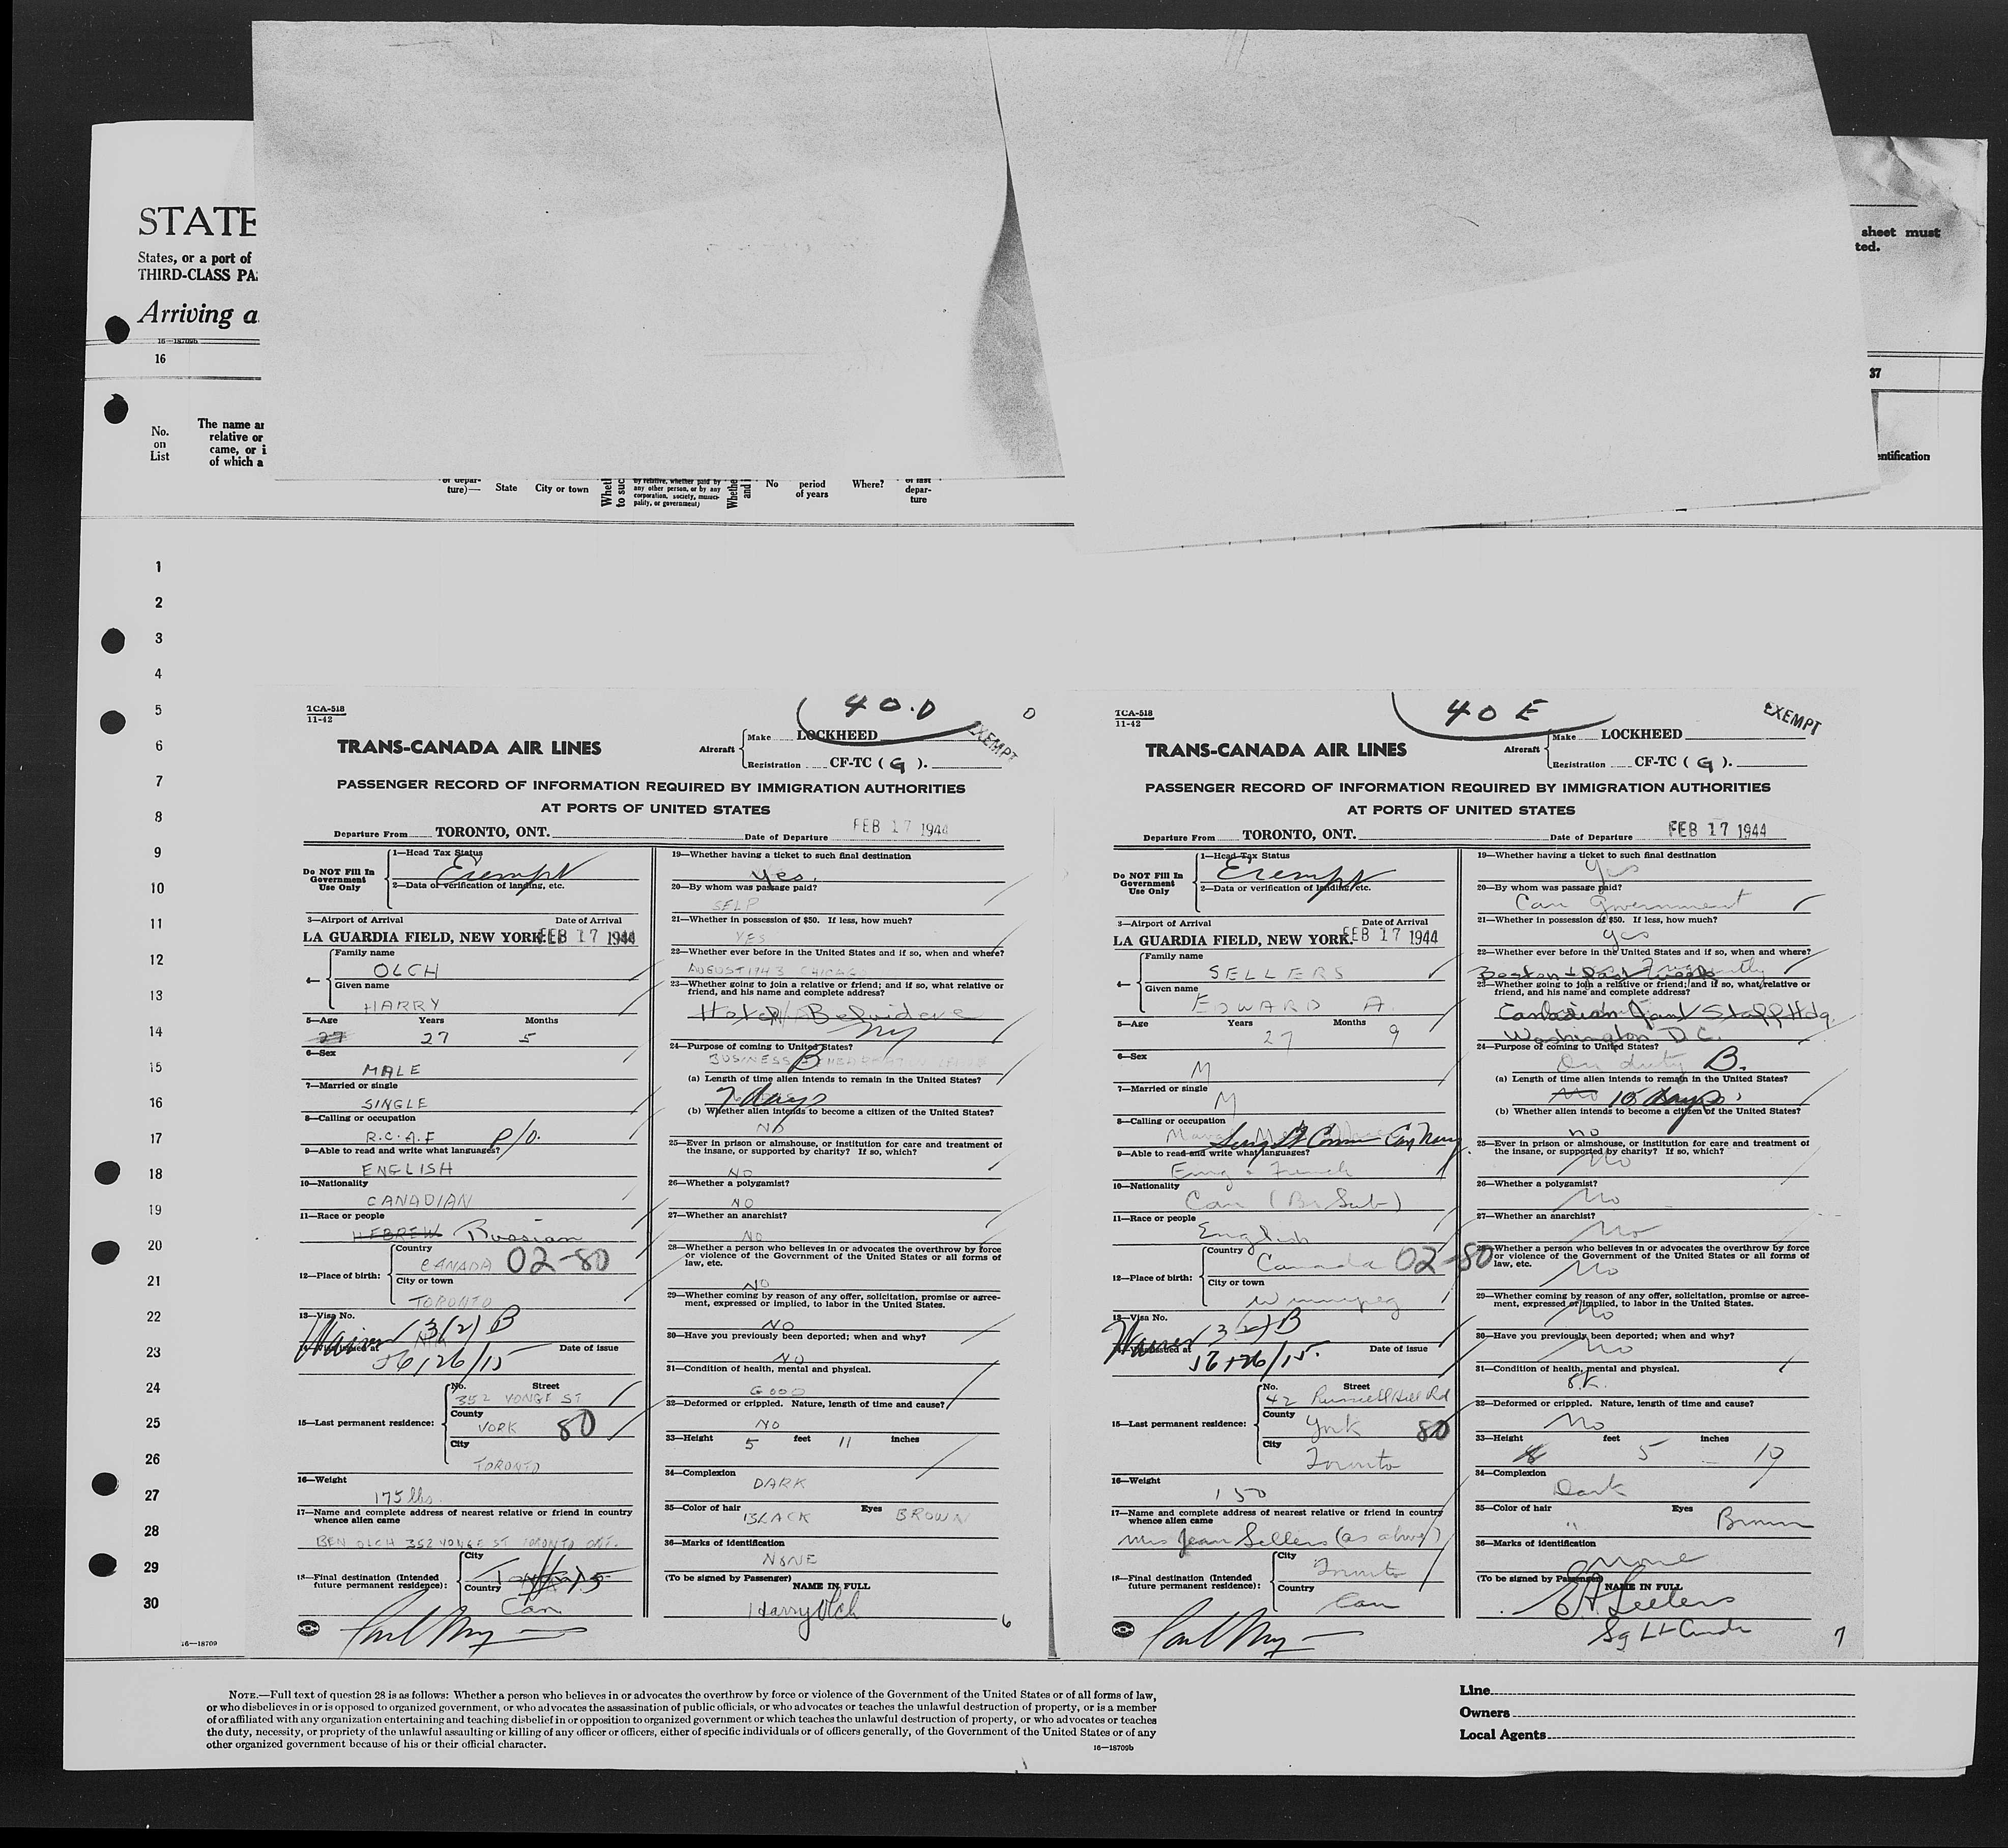 STATE
States, or a port of
THIRD-CLASS PA
Arriving a
16—18709b
16
No.
on
List
The name a
relative or
came, or i
of which a
sheet must
ted.
37
entification
ture)—
State
City or town
Whet
to suc
by relative, whether paid by
any other person, or by any
corporation, society, munici-
pality, or government)
Whethe
and i
No
period
of years
Where?
of last
depar-
ture
1
2
3
4
5
6
7
8
9
10
11
12
13
14
15
16
17
18
19
20
21
22
23
24
25
26
27
28
29
30
16—18709
TCA-518
11-42
40.D
EXEMPT
TRANS-CANADA AIR LINES
Aircraft
Make LOCKHEED
Registration CF-TC ( G ).
PASSENGER RECORD OF INFORMATION REQUIRED BY IMMIGRATION AUTHORITIES
AT PORTS OF UNITED STATES
Departure From TORONTO, ONT. Date of Departure FEB 17 1944
Do NOT Fill In
Government
Use Only
1—Head Tax Status
Exempt
2—Data or verification of landing, etc.
3—Airport of Arrival Date of Arrival
LA GUARDIA FIELD, NEW YORK. FEB 17 1944
4—
Family name
OLCH
Given name
HARRY
5—Age Years Months
27 27 5
6—Sex
MALE
7—Married or single
SINGLE
8—Calling or occupation
R.C.A.F P/O.
9—Able to read and write what languages?
ENGLISH
10—Nationality
CANADIAN
11—Race or people
HEBREW Russian
12—Place of birth:
Country
CANADA 02-80
City or town
TORONTO
13—Visa No.
Waiver 3(2) B
N/A
14—Visa issued at Date of issue
56,26/15
15—Last permanent residence:
No. Street
352 YONGE ST
County
YORK 80
City
TORONTO
16—Weight
175 lbs.
17—Name and complete address of nearest relative or friend in country
whence alien came
BEN OLCH 352 YONGE ST TORONTO ONT.
18—Final destination (Intended
future permanent residence):
City
Country
Can
19—Whether having a ticket to such final destination
Yes.
20—By whom was passage paid?
SELF
21—Whether in possession of $50. If less, how much?
YES
22—Whether ever before in the United States and if so, when and where?
AUGUST 1943 CHICAGO
23—Whether going to join a relative or friend; and if so, what relative or
friend, and his name and complete address?
Hotel Belvidere
NY
24—Purpose of coming to United States?
BUSINESS B
(a) Length of time alien intends to remain in the United States?
7 days
(b) Whether alien intends to become a citizen of the United States?
NO
25—Ever in prison or almshouse, or institution for care and treatment of
the insane, or supported by charity? If so, which?
NO
26—Whether a polygamist?
NO
27—Whether an anarchist?
NO
28—Whether a person who believes in or advocates the overthrow by force
or violence of the Government of the United States or all forms of
law, etc.
NO
29—Whether coming by reason of any offer, solicitation, promise or agree-
ment, expressed or implied, to labor in the United States.
NO
30—Have you previously been deported; when and why?
NO
31—Condition of health, mental and physical.
GOOD
32—Deformed or crippled. Nature, length of time and cause?
NO
33—Height 5 feet 11 inches
34—Complexion
DARK
35—Color of hair Eyes
BLACK BROWN
36—Marks of identification
NONE
(To be signed by Passenger)
NAME IN FULL
Harry Olch
6
TCA-518
11-42
40 E
EXEMPT
TRANS-CANADA AIR LINES
Aircraft
Make LOCKHEED
Registration CF-TC ( G ).
PASSENGER RECORD OF INFORMATION REQUIRED BY IMMIGRATION AUTHORITIES
AT PORTS OF UNITED STATES
Departure From TORONTO, ONT. Date of Departure FEB 17 1944
Do NOT Fill In
Government
Use Only
1—Head Tax Status
Exempt
2—Data or verification of landing, etc.
3—Airport of Arrival Date of Arrival
LA GUARDIA FIELD, NEW YORK. FEB 17 1944
4—
Family name
SELLERS
Given name
EDWARD A.
5—Age Years Months
27 9
6—Sex
M
7—Married or single
M
8—Calling or occupation
Surg Lt Comm Can Navy
9—Able to read and write what languages?
Eng + French
10—Nationality
Can (Br Sub)
11—Race or people
English
12—Place of birth:
Country
Canada 02-80
City or town
Winnipeg
13—Visa No.
Waiver 3(2)B
14—Visa issued at Date of issue
56+26/15.
15—Last permanent residence:
No. Street
42 Russell Hill Rd
County
York 80
City
Toronto
16—Weight
150
17—Name and complete address of nearest relative or friend in country
whence alien came
Mrs Jean Sellers (as above)
18—Final destination (Intended
future permanent residence):
City
Toronto
Country
Can
19—Whether having a ticket to such final destination
Yes
20—By whom was passage paid?
Can Government
21—Whether in possession of $50. If less, how much?
yes
22—Whether ever before in the United States and if so, when and where?
Frequently
Boston + past week
23—Whether going to join a relative or friend; and if so, what relative or
friend, and his name and complete address?
Canadian Joint Staff Hdq.
Washington D.C.
24—Purpose of coming to United States?
On duty B.
(a) Length of time alien intends to remain in the United States?
No 15 days
(b) Whether alien intends to become a citizen of the United States?
no
25—Ever in prison or almshouse, or institution for care and treatment of
the insane, or supported by charity? If so, which?
No
26—Whether a polygamist?
No
27—Whether an anarchist?
No
28—Whether a person who believes in or advocates the overthrow by force
or violence of the Government of the United States or all forms of
law, etc.
No
29—Whether coming by reason of any offer, solicitation, promise or agree-
ment, expressed or implied, to labor in the United States.
No
30—Have you previously been deported; when and why?
No
31—Condition of health, mental and physical.
O.K.
32—Deformed or crippled. Nature, length of time and cause?
No
33—Height feet 5 inches 10
34—Complexion
Dark
35—Color of hair Eyes
" Brown
36—Marks of identification
none
(To be signed by Passenger)
NAME IN FULL
EA Sellers
Sg Lt Cmdr
7
NOTE.—Full text of question 28 is as follows: Whether a person who believes in or advocates the overthrow by force or violence of the Government of the United States or of all forms of law,
or who disbelieves in or is opposed to organized government, or who advocates the assassination of public officials, or who advocates or teaches the unlawful destruction of property, or is a member
of or affiliated with any organization entertaining and teaching disbelief in or opposition to organized government or which teaches the unlawful destruction of property, or who advocates or teaches
the duty, necessity, or propriety of the unlawful assaulting or killing of any officer or officers, either of specific individuals or of officers generally, of the Government of the United States or of any
other organized government because of his or their official character.
16—18709b
Line
Owners
Local Agents